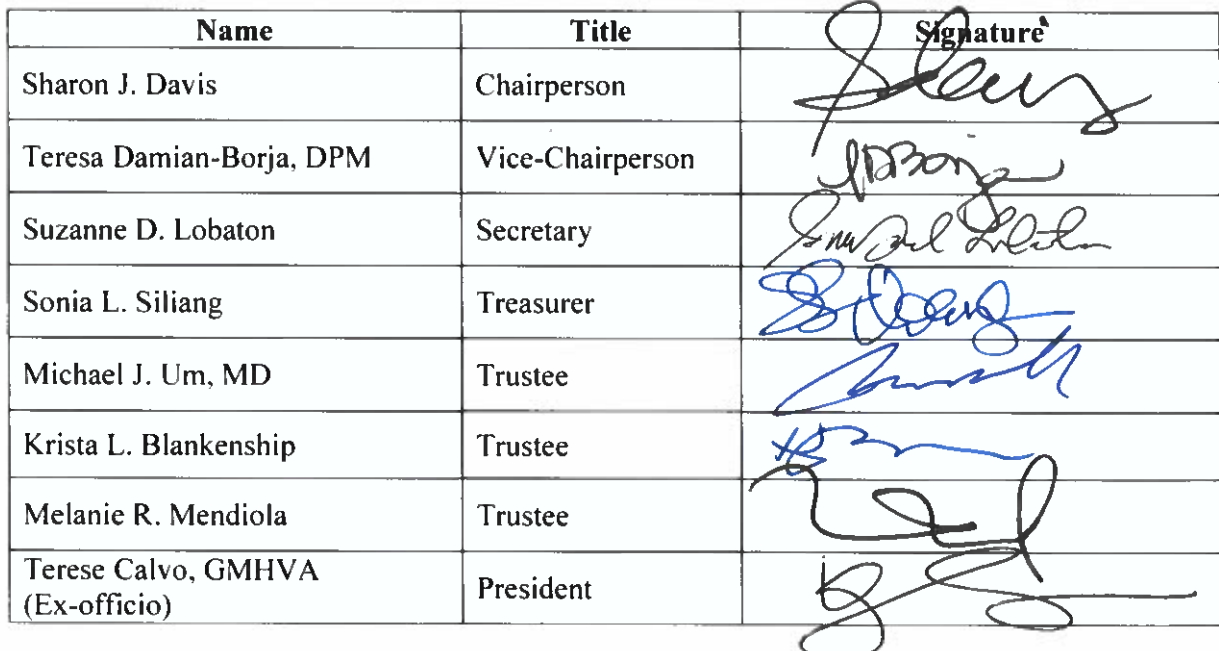 Name Title Signature
Sharon J. Davis Chairperson
Teresa Damian-Borja, DPM Vice-Chairperson
Suzanne D. Lobaton Secretary
Sonia L. Siliang Treasurer
Michael J. Um, MD Trustee
Krista L. Blankenship Trustee
Melanie R. Mendiola Trustee
Terese Calvo, GMHVA
(Ex-officio) President